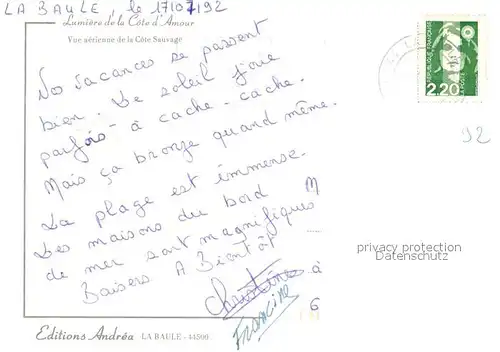 LA BAULE, le 17/07/92
Lumière de la Côte d'Amour
Vue aérienne de la Côte Sauvage
REPUBLIQUE FRANÇAISE
2,20
92
Nos vacances se passent
bien. Le soleil joue
parfois à cache-cache.
Mais ça bronze quand même.
La plage est immense.
Les maisons du bord
de mer sont magnifiques
Baisers A Bientôt
Christine
Francine
M
à
6
privacy protection
Datenschutz
Editions Andréa LA BAULE - 44500